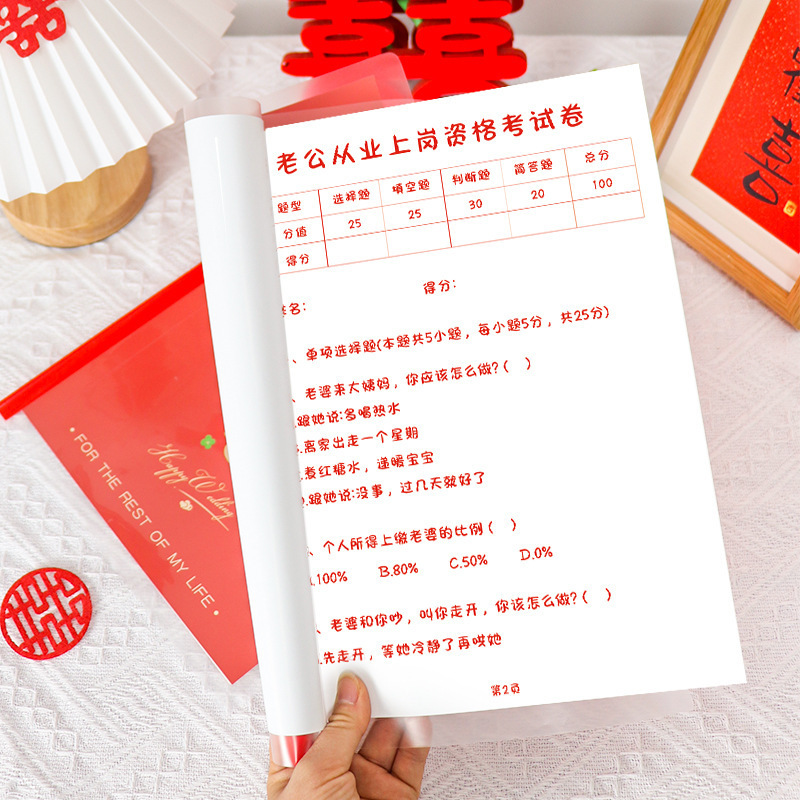 囍
囍
老公从业上岗资格考试卷
题型 选择题 填空题 判断题 简答题 总分
分值 25 25 30 20 100
得分
签名: 得分:
、单项选择题(本题共5小题，每小题5分，共25分)
、老婆来大姨妈，你应该怎么做?( )
.跟她说:多喝热水
.离家出走一个星期
.煮红糖水，递暖宝宝
.跟她说:没事，过几天就好了
、个人所得上缴老婆的比例( )
.100% B.80% C.50% D.0%
、老婆和你吵，叫你走开，你该怎么做?( )
.先走开，等她冷静了再哎她
第2页
Happy Wedding
•FOR THE REST OF MY LIFE•
囍